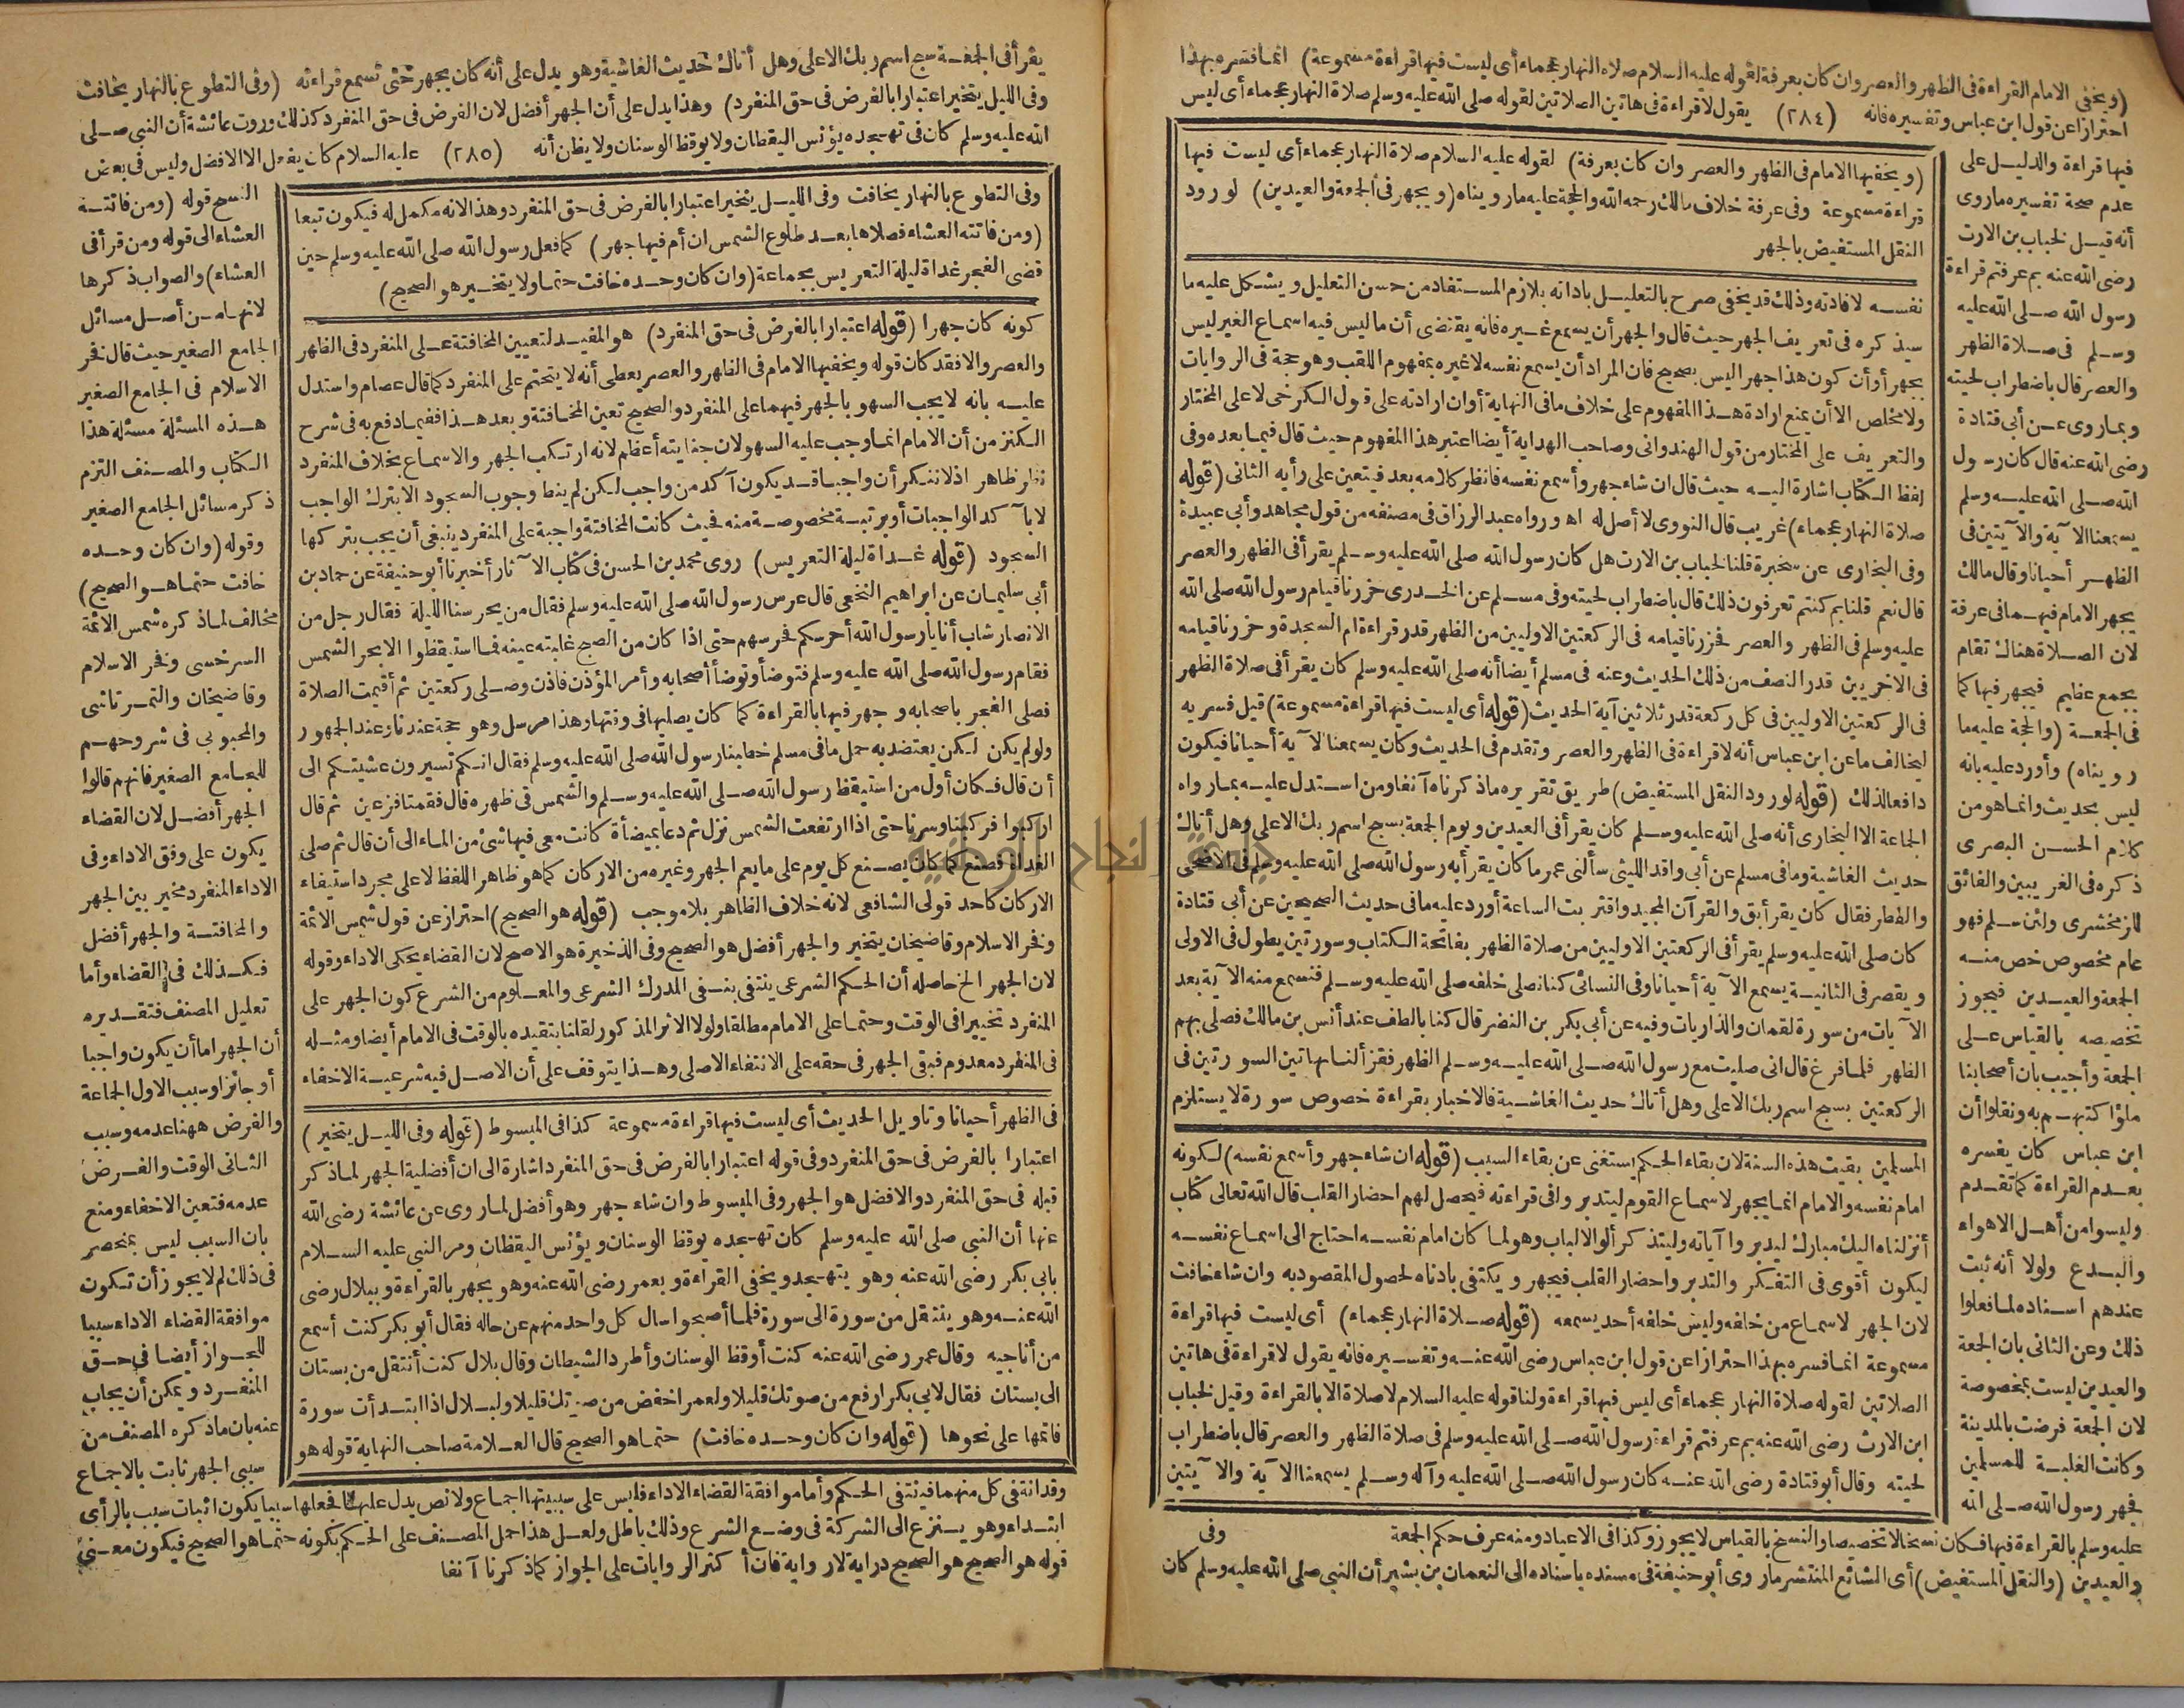 (ويخفي الامام القراءة فى الظهر والعصر وان كان بعرفة لقوله عليه السلام صلاة النهار عجماء أى ليست فيها قراءة مسموعة) انما فسره بهذا
احترازا عن قول ابن عباس وتفسيره فانه (٢٨٤) يقول لا قراءة فى هاتين الصلاتين لقوله صلى الله عليه وسلم صلاة النهار عجماء أى ليس
فيها قراءة والدليل على
عدم صحة تفسيره ماروى
أنه قيل لخباب بن الارت
رضى الله عنه بم عرفتم قراءة
رسول الله صلى الله عليه
وسلم فى صلاة الظهر
والعصر قال باضطراب لحيته
وبما روى عن أبى قتادة
رضى الله عنه قال كان رسول
الله صلى الله عليه وسلم
يسمعنا الآية والآيتين فى
الظهر أحيانا وقال مالك
يجهر الامام فيهما فى عرفة
لان الصلاة هناك تقام
بجمع عظيم فيجهر فيها كما
فى الجمعة (والحجة عليه ما
رويناه) وأورد عليه بانه
ليس بحديث وانما هو من
كلام الحسن البصرى
ذكره فى الغريبين والفائق
للزمخشرى ولئن سلم فهو
عام مخصوص خص منه
الجمعة والعيدين فيجوز
تخصيصه بالقياس على
الجمعة وأجيب بان أصحابنا
ملؤا كتبهم به ونقلوا أن
ابن عباس كان يفسره
بعدم القراءة كما تقدم
وليسوا من أهل الاهواء
والبدع ولولا أنه ثبت
عندهم اسناده لما فعلوا
ذلك وعن الثانى بان الجمعة
والعيدين ليست بمخصوصة
لان الجمعة فرضت بالمدينة
وكانت الغلبة للمسلمين
فجهر رسول الله صلى الله
(ويخفيها الامام فى الظهر والعصر وان كان بعرفة) لقوله عليه السلام صلاة النهار عجماء أى ليست فيها
قراءة مسموعة وفى عرفة خلاف مالك رحمه الله والحجة عليه ما رويناه (ويجهر فى الجمعة والعيدين) لورود
النقل المستفيض بالجهر
نفسه لافادته وذلك قد يخفى صرح بالتعليل بادانه بلازم المستفاد من حسن التعليل ويشكل عليه ما
سيذكره فى تعريف الجهر حيث قال والجهر أن يسمع غيره فانه يقتضى أن ما ليس فيه اسماع الغير ليس
بجهر أو أن كون هذا جهرا ليس بصحيح فان المراد أن يسمع نفسه لا غيره بمفهوم اللقب وهو حجة فى الروايات
ولا مخلص الا أن يمنع ارادة هذا المفهوم على خلاف ما فى النهاية أو ان ارادته على قول الكرخى لا على المختار
والتعريف على المختار من قول الهندوانى وصاحب الهداية أيضا اعتبر هذا المفهوم حيث قال فيما بعده وفى
لفظ الكتاب اشارة اليه حيث قال ان شاء جهر وأسمع نفسه فانظر كلامه بعد فيتعين على رأيه الثانى (قوله
صلاة النهار عجماء) غريب قال النووى لا أصل له اه ورواه عبد الرزاق فى مصنفه من قول مجاهد وأبى عبيدة
وفى البخارى عن سخبرة قلنا لخباب بن الارت هل كان رسول الله صلى الله عليه وسلم يقرأ فى الظهر والعصر
قال نعم قلنا بم كنتم تعرفون ذلك قال باضطراب لحيته وفى مسلم عن الخدرى حزرنا قيام رسول الله صلى الله
عليه وسلم فى الظهر والعصر فحزرنا قيامه فى الركعتين الاوليين من الظهر قدر قراءة ام السجدة وحزرنا قيامه
فى الاخريين قدر النصف من ذلك الحديث وعنه فى مسلم أيضا أنه صلى الله عليه وسلم كان يقرأ فى صلاة الظهر
فى الركعتين الاوليين فى كل ركعة قدر ثلاثين آية الحديث (قوله أى ليست فيها قراءة مسموعة) قيل فسر به
ليخالف ما عن ابن عباس أنه لا قراءة فى الظهر والعصر وتقدم فى الحديث وكان يسمعنا الآية أحيانا فيكون
دافعا لذلك (قوله لورود النقل المستفيض) طريق تقريره ما ذكرناه آنفا ومن استدل عليه بما رواه
الجماعة الا البخارى أنه صلى الله عليه وسلم كان يقرأ فى العيدين ويوم الجمعة بسبح اسم ربك الاعلى وهل أتاك
حديث الغاشية وما فى مسلم عن أبى واقد الليثى سألنى عمر ما كان يقرأ به رسول الله صلى الله عليه وسلم فى الاضحى
والفطر فقال كان يقرأ بق والقرآن المجيد واقتربت الساعة أورد عليه ما فى حديث الصحيحين عن أبى قتادة
كان صلى الله عليه وسلم يقرأ فى الركعتين الاوليين من صلاة الظهر بفاتحة الكتاب وسورتين يطول فى الاولى
ويقصر فى الثانية يسمع الآية أحيانا وفى النسائى كنا نصلى خلفه صلى الله عليه وسلم فنسمع منه الآية بعد
الآيات من سورة لقمان والذاريات وفيه عن أبى بكر بن النضر قال كنا بالطف عند أنس بن مالك فصلى بهم
الظهر فلما فرغ قال انى صليت مع رسول الله صلى الله عليه وسلم الظهر فقرأ لنا بهاتين السورتين فى
الركعتين بسبح اسم ربك الاعلى وهل أتاك حديث الغاشية فالاخبار بقراءة خصوص سورة لا يستلزم
المسلمين بقيت هذه السنة لان بقاء الحكم يستغنى عن بقاء السبب (قوله ان شاء جهر وأسمع نفسه) لكونه
امام نفسه والامام انما يجهر لاسماع القوم ليتدبروا فى قراءته فيحصل لهم احضار القلب قال الله تعالى كتاب
أنزلناه اليك مبارك ليدبروا آياته وليتذكر ألوا الالباب وهو لما كان امام نفسه احتاج الى اسماع نفسه
ليكون أقوى فى التفكر والتدبر واحضار القلب فيجهر ويكتفى بادناه لحصول المقصود به وان شاء خافت
لان الجهر لاسماع من خلفه وليس خلفه أحد يسمعه (قوله صلاة النهار عجماء) أى ليست فيها قراءة
مسموعة انما فسره بهذا احترازا عن قول ابن عباس رضى الله عنه وتفسيره فانه يقول لا قراءة فى هاتين
الصلاتين لقوله صلاة النهار عجماء أى ليس فيها قراءة ولنا قوله عليه السلام لا صلاة الا بالقراءة وقيل لخباب
ابن الارث رضى الله عنه بم عرفتم قراءة رسول الله صلى الله عليه وسلم فى صلاة الظهر والعصر قال باضطراب
لحيته وقال أبو قتادة رضى الله عنه كان رسول الله صلى الله عليه وآله وسلم يسمعنا الآية والآيتين
عليه وسلم بالقراءة فيها فكان نسخا لا تخصيصا والنسخ بالقياس لا يجوز وكذا فى الاعياد ومنه عرف حكم الجمعة
والعيدين (والنقل المستفيض) أى الشائع المنتشر ما روى أبو حنيفة فى مسنده باسناده الى النعمان بن بشير أن النبى صلى الله عليه وسلم كان
وفى
يقرأ فى الجمعة سبح اسم ربك الاعلى وهل أتاك حديث الغاشية وهو يدل على أنه كان يجهر حتى تسمع قراءته (وفى التطوع بالنهار يخافت
وفى الليل يتخير اعتبارا بالفرض فى حق المنفرد) وهذا يدل على أن الجهر أفضل لان الفرض فى حق المنفرد كذلك وروت عائشة أن النبى صلى
الله عليه وسلم كان فى تهجده يؤنس اليقظان ولا يوقظ الوسنان ولا يظن أنه (٢٨٥) عليه السلام كان يفعل الا الافضل وليس فى بعض
وفى التطوع بالنهار يخافت وفى الليل يتخير اعتبارا بالفرض فى حق المنفرد وهذا لانه مكمل له فيكون تبعا
(ومن فاتته العشاء فصلاها بعد طلوع الشمس ان أم فيها جهر) كما فعل رسول الله صلى الله عليه وسلم حين
قضى الفجر غداة ليلة التعريس بجماعة (وان كان وحده خافت حتما ولا يتخير هو الصحيح)
كونه كان جهرا (قوله اعتبارا بالفرض فى حق المنفرد) هو المفيد لتعيين المخافتة على المنفرد فى الظهر
والعصر والا فقد كان قوله ويخفيها الامام فى الظهر والعصر يعطى أنه لا يتحتم على المنفرد كما قال عصام واستدل
عليه بانه لا يجب السهو بالجهر فيهما على المنفرد والصحيح تعين المخافتة وبعد هذا ففيما دفع به فى شرح
الكنز من أن الامام انما وجب عليه السهو لان جنايته أعظم لانه ارتكب الجهر والاسماع بخلاف المنفرد
نظر ظاهر اذ لا ننكر أن واجبا قد يكون آكد من واجب لكن لم ينط وجوب السجود الا بترك الواجب
لا بآكد الواجبات أو برتبة مخصوصة منه فحيث كانت المخافتة واجبة على المنفرد ينبغى أن يجب بتركها
السجود (قوله غداة ليلة التعريس) روى محمد بن الحسن فى كتاب الآثار أخبرنا أبو حنيفة عن حماد بن
أبى سليمان عن ابراهيم النخعى قال عرس رسول الله صلى الله عليه وسلم فقال من يحرسنا الليلة فقال رجل من
الانصار شاب أنا يا رسول الله أحرسكم فحرسهم حتى اذا كان من الصبح غلبته عينه فما استيقظوا الا بحر الشمس
فقام رسول الله صلى الله عليه وسلم فتوضأ وتوضأ أصحابه وأمر المؤذن فاذن وصلى ركعتين ثم أقيمت الصلاة
فصلى الفجر باصحابه وجهر فيها بالقراءة كما كان يصليها فى وقتها وهذا مرسل وهو حجة عندنا وعند الجمهور
ولو لم يكن لكن يعتضد به حمل ما فى مسلم خطبنا رسول الله صلى الله عليه وسلم فقال انكم تسيرون عشيتكم الى
أن قال فكان أول من استيقظ رسول الله صلى الله عليه وسلم والشمس فى ظهره قال فقمنا فزعين ثم قال
اركبوا فركبنا وسرنا حتى اذا ارتفعت الشمس نزل ثم دعا بميضأة كانت معى فيها شئ من الماء الى أن قال ثم صلى
الغداة فصنع كما كان يصنع كل يوم على ما يعم الجهر وغيره من الاركان كما هو ظاهر اللفظ لا على مجرد استيفاء
الاركان كاحد قولى الشافعى لانه خلاف الظاهر بلا موجب (قوله هو الصحيح) احتراز عن قول شمس الائمة
وفخر الاسلام وقاضيخان يتخير والجهر أفضل هو الصحيح وفى الذخيرة هو الاصح لان القضاء يحكى الاداء وقوله
لان الجهر الخ حاصله أن الحكم الشرعى ينتفى بنفى المدرك الشرعى والمعلوم من الشرع كون الجهر على
المنفرد تخييرا فى الوقت وحتما على الامام مطلقا ولولا الاثر المذكور لقلنا بتقيده بالوقت فى الامام أيضا ومثله
فى المنفرد معدوم فبقى الجهر فى حقه على الانتفاء الاصلى وهذا يتوقف على أن الاصل فيه شرعية الاخفاء
فى الظهر أحيانا وتاويل الحديث أى ليست فيها قراءة مسموعة كذا فى المبسوط (قوله وفى الليل يتخير)
اعتبارا بالفرض فى حق المنفرد وفى قوله اعتبارا بالفرض فى حق المنفرد اشارة الى ان أفضلية الجهر لما ذكر
قبله فى حق المنفرد والافضل هو الجهر وفى المبسوط وان شاء جهر وهو أفضل لما روى عن عائشة رضى الله
عنها أن النبى صلى الله عليه وسلم كان تهجده يوقظ الوسنان ويؤنس اليقظان ومر النبي عليه السلام
بابى بكر رضى الله عنه وهو يتهجد ويخفى القراءة وبعمر رضى الله عنه وهو يجهر بالقراءة وببلال رضى
الله عنه وهو ينتقل من سورة الى سورة فلما أصبحوا سال كل واحد منهم عن حاله فقال أبو بكر كنت أسمع
من أناجيه وقال عمر رضى الله عنه كنت أوقظ الوسنان وأطرد الشيطان وقال بلال كنت أنتقل من بستان
الى بستان فقال لابي بكر ارفع من صوتك قليلا ولعمر اخفض من صوتك قليلا ولبلال اذا ابتدأت سورة
فاتمها على نحوها (قوله وان كان وحده خافت) حتما هو الصحيح قال العلامة صاحب النهاية قوله هو
النسخ قوله (ومن فاتته
العشاء الى قوله ومن قرأ فى
العشاء) والصواب ذكرها
لانها من أصل مسائل
الجامع الصغير حيث قال فخر
الاسلام فى الجامع الصغير
هذه المسئلة مسئلة هذا
الكتاب والمصنف التزم
ذكر مسائل الجامع الصغير
وقوله (وان كان وحده
خافت حتما هو الصحيح)
مخالف لما ذكره شمس الائمة
السرخسى وفخر الاسلام
وقاضيخان والتمرتاشى
والمحبوبى فى شروحهم
للجامع الصغير فانهم قالوا
الجهر أفضل لان القضاء
يكون على وفق الاداء وفى
الاداء المنفرد مخير بين الجهر
والمخافتة والجهر أفضل
فكذلك فى القضاء وأما
تعليل المصنف فتقديره
أن الجهر اما أن يكون واجبا
أو جائزا وسبب الاول الجماعة
والفرض ههنا عدمه وسبب
الثانى الوقت والفرض
عدمه فتعين الاخفاء ومنع
بان السبب ليس بمنحصر
فى ذلك لم لا يجوز أن تكون
موافقة القضاء الاداء سببا
للجواز أيضا فى حق
المنفرد ويمكن أن يجاب
عنه بان ما ذكره المصنف من
سببى الجهر ثابت بالاجماع
وقد انتفى كل منهما فينتفى الحكم وأما موافقة القضاء الاداء فليس على سببيتها اجماع ولا نص يدل عليها فجعلها سببا يكون اثبات سبب بالرأى
ابتداء وهو ينزع الى الشركة فى وضع الشرع وذلك باطل ولعل هذا حمل المصنف على الحكم بكونه حتما هو الصحيح فيكون معنى
قوله هو الصحيح هو الصحيح دراية لا رواية فان أكثر الروايات على الجواز كما ذكرنا آنفا
جامعة النجاح الوطنية